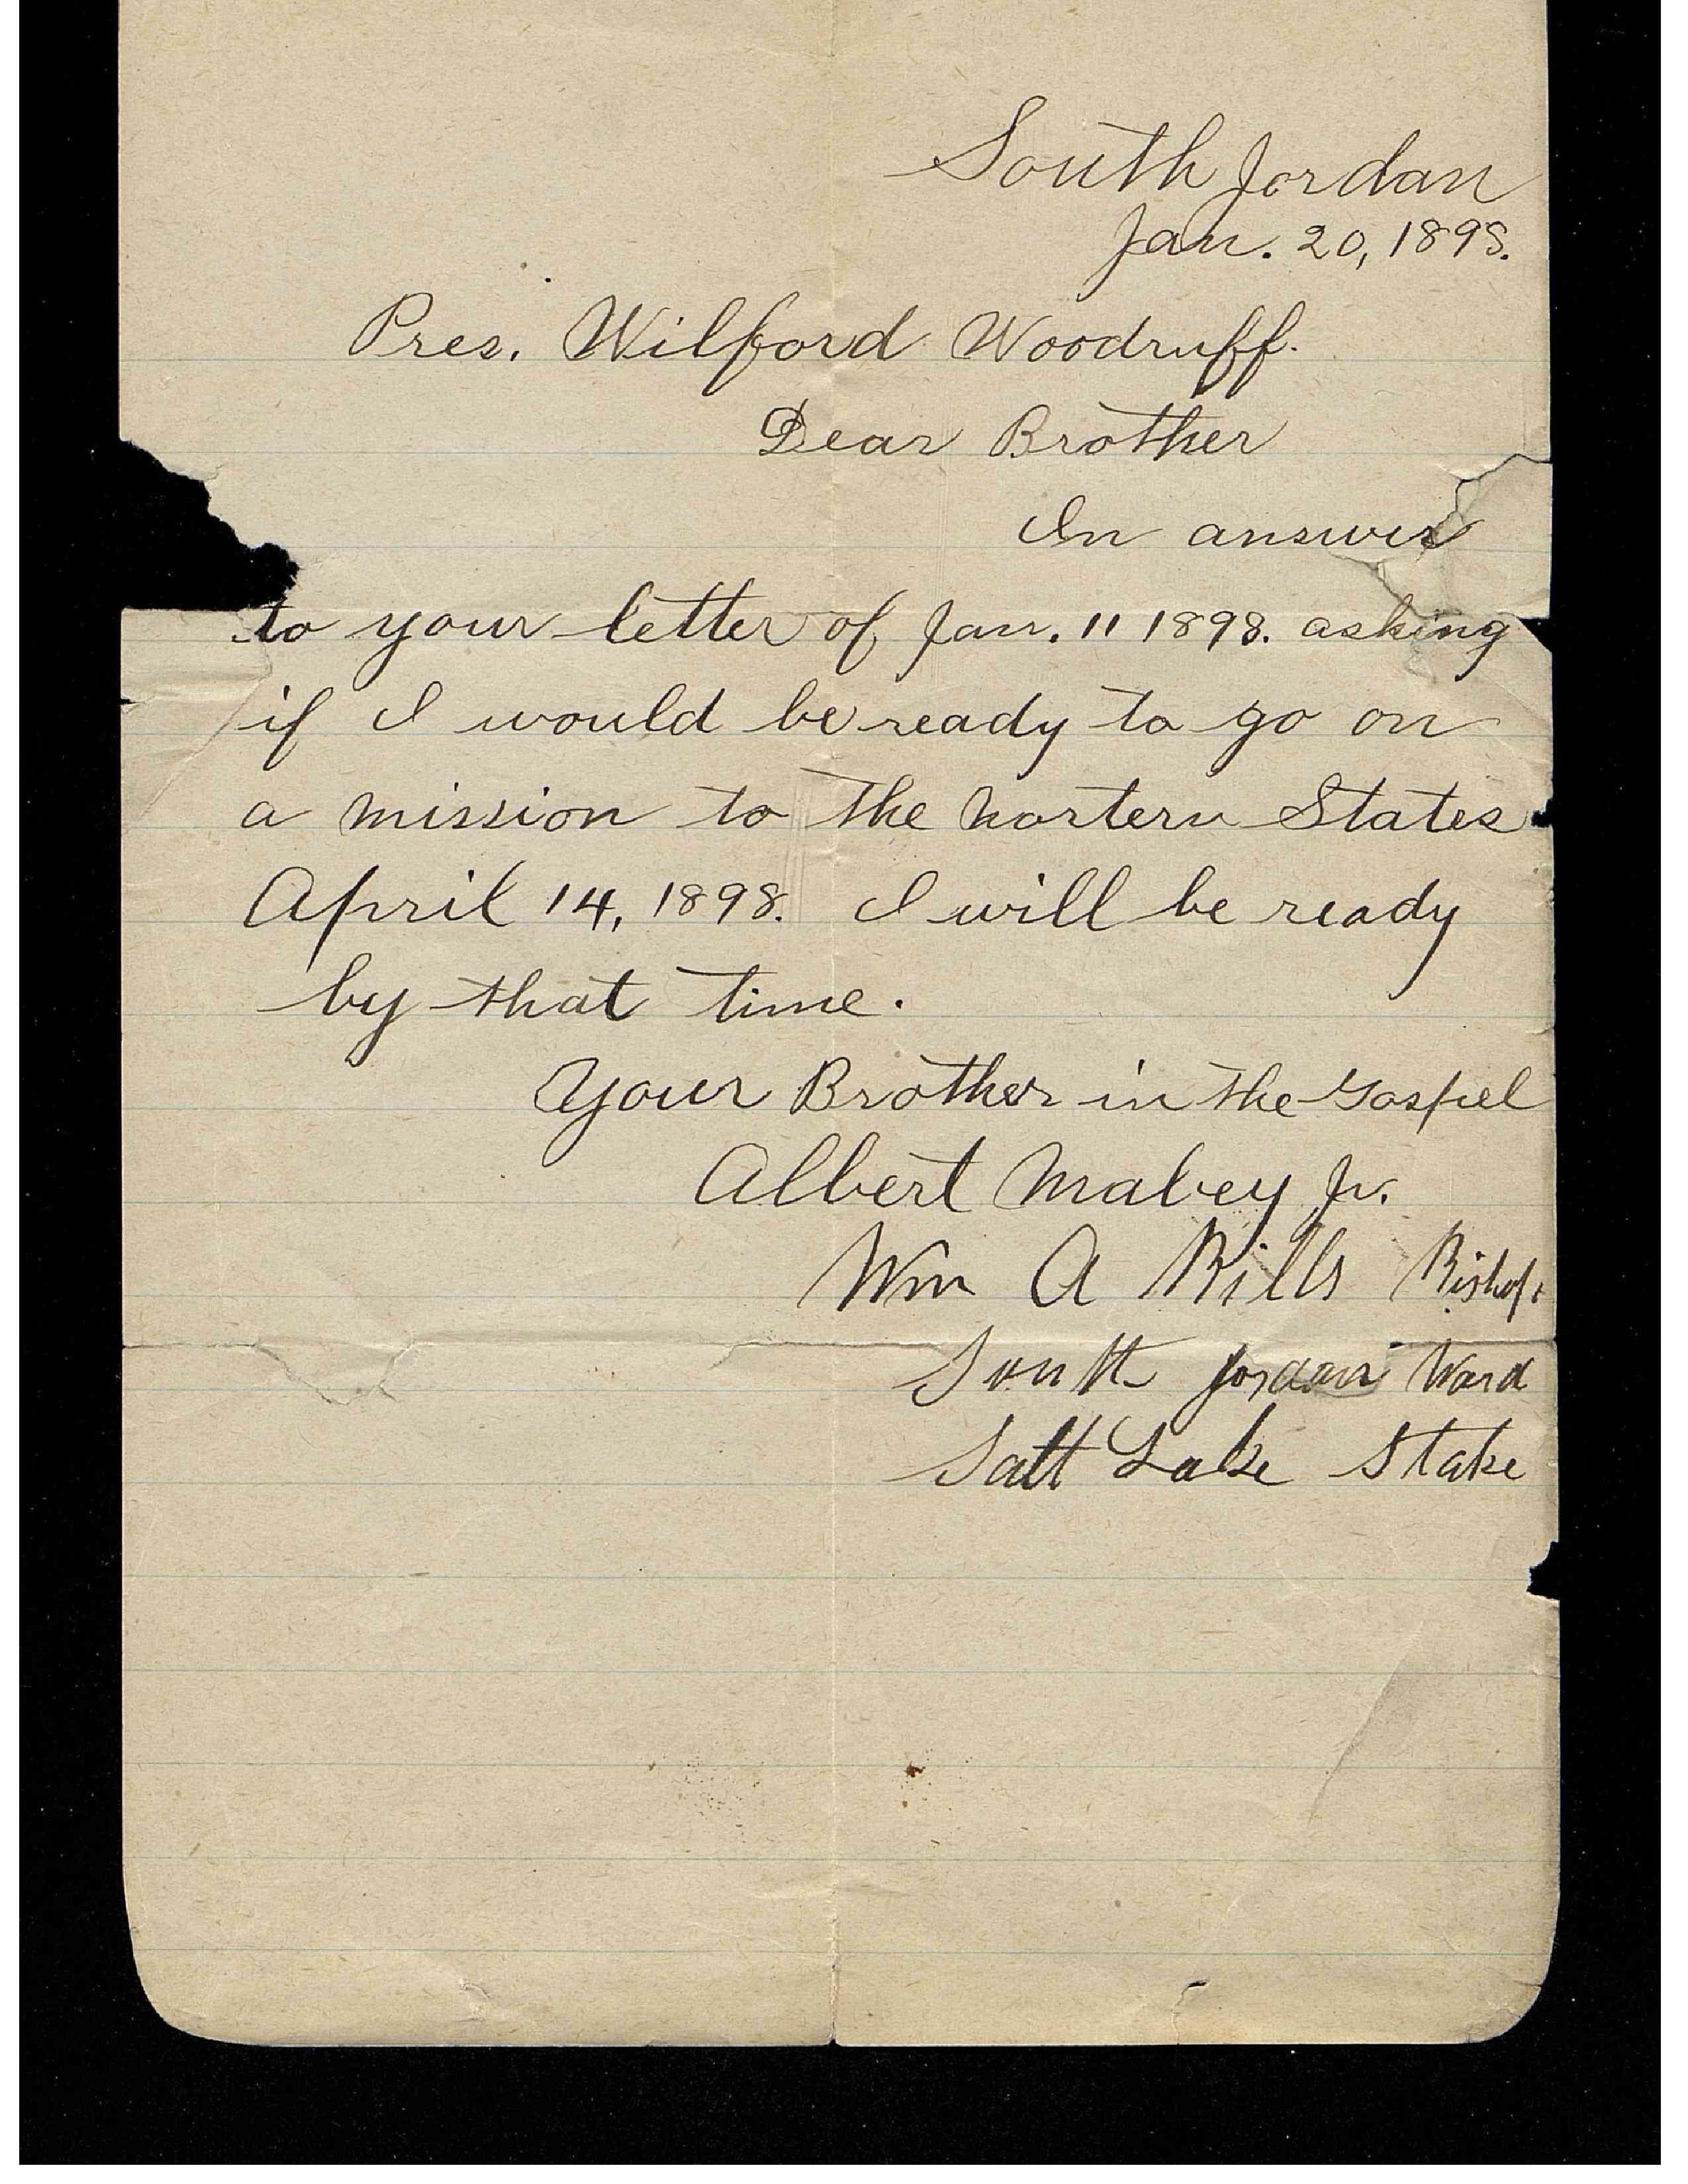 South Jordan
Jan. 20, 1898.
Pres. Wilford Woodruff.
Dear Brother
In answer
to your letter of Jan. 11 1898. asking
if I would be ready to go on
a mission to the nortern States
April 14, 1898. I will be ready
by that time.
Your Brother in the Gospel
Albert Mabey Jr.
Wm A Bills Bishop.
South Jordan Ward
Salt Lake Stake